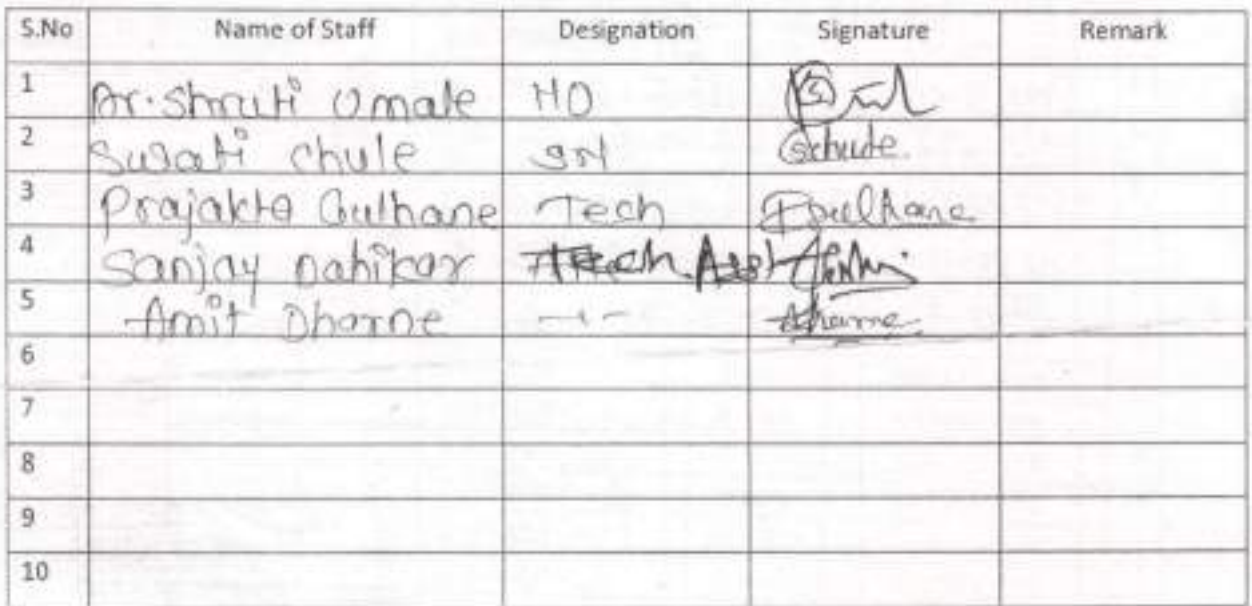 S.No Name of Staff Designation Signature Remark
1 Dr. Shruti Umale MO
2 Surati Chule SN Gchule
3 Prajakta Gulhane Tech PGulhane
4 Sanjay Dahikar Tech Asst
5 Amit Dharne -"- Dharne
6
7
8
9
10